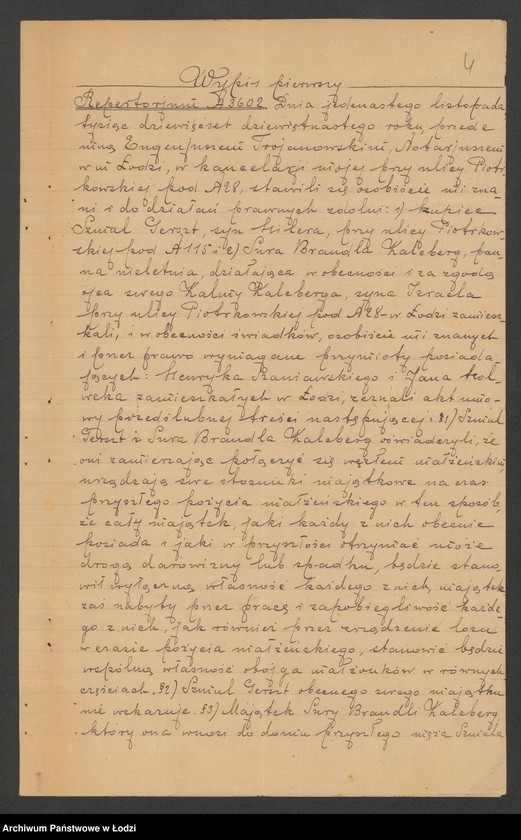 4
Wypis pierwszy
Repertorjum № 3602 Dnia jedenastego listopada
tysiąc dziewięćset dziewiętnastego roku, przede
mną Eugenjuszem Trojanowskim, Notarjuszem
w m. Łodzi, w kancelarji mojej przy ulicy Piotr-
kowskiej pod № 28, stawili się osobiście mi zna-
ni i do działań prawnych zdolni: 1) kupiec
Szmul Gerszt, syn Hilera, przy ulicy Piotrkow-
skiej pod № 115 i 2) Sura Brandla Kaleberg, pan-
na nieletnia, działająca w obecności i za zgodą
ojca swego Kalmy Kaleberga, syna Izraela
przy ulicy Piotrkowskiej pod № 28 w Łodzi zamiesz-
kali, i w obecności świadków, osobiście mi znanych
i przez prawo wymagane przymioty posiada
jących: Henryka Szaniawskiego i Jana
zamieszkałych w Łodzi, zeznali akt umo-
wy przedślubnej treści następującej: §1) Szmul
Gerszt i Sura Brandla Kaleberg oświadczyli, że
oni zamierzając połączyć się węzłem małżeńskim,
urządzają swe stosunki majątkowe na czas
przyszłego pożycia małżeńskiego w ten sposób,
że cały majątek, jaki każdy z nich obecnie
posiada i jaki w przyszłości otrzymać może
drogą darowizny lub spadku, będzie stano-
wił wyłączną własność każdego z nich, majątek
zaś nabyty przez pracę i zapobiegliwość każde-
go z nich, jak również przez zrządzenie losu
w czasie pożycia małżeńskiego, stanowić będzie
wspólną własność obojga małżonków w równych
częściach. §2) Szmul Gerszt obecnego swego majątku
nie wskazuje. §3) Majątek Sury Brandli Kaleberg,
który ona wnosi do domu przyszłego męża Szmula
Archiwum Państwowe w Łodzi